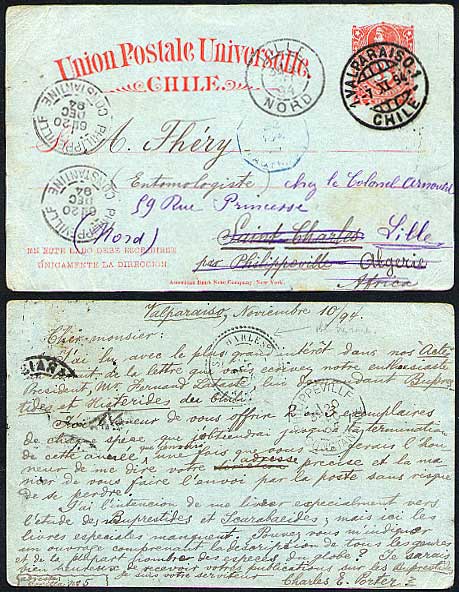 Union Postale Universelle.
CHILE.
LILLE
94
NORD
VALPARAISO.1
7 XI 94
CHILE
PHILIPPEVILLE
6E/20
DEC
94
CONSTANTINE
PHILIPPEVILLE
6E/20
DEC
94
CONSTANTINE
A. Théry
(Entomologiste) chez le Colonel Arnould
59 Rue Princesse
Saint Charles Lille
(Nord)
par Philippeville Algerie
Africa
EN ESTE LADO DEBE ESCRIBIRSE
ÚNICAMENTE LA DIRECCION.
American Bank Note Company, New York.
Valparaiso, Noviembre 10/94.
Cher monsieur:
J'ai lu avec le plus grand intérêt dans nos Actes
de la lettre que vous écrivez notre enthousiaste
President, Mr. Fernand Lataste, lui demandant Bupres-
tides et Histerides du Chili.
J'ai l'honneur de vous offrir 2 ou 3 exemplaires
de chaque espece que j'obtiendrai jusqu'à la termination
de cette année, une fois que vous l'hon-
neur de me dire votre adresse précise et la ma-
nière de vous faire l'envoi par la poste sans risque
de se perdre.
J'ai l'intencion de me livrer especialment vers
l'étude des Buprestides et Scarabaeides, mais ici les
livres especiales manquent. Pouvez vous m'indiquer
un ouvrage comprenant la description de tous les genres
et de la plupart des especes du globe? Je serais
bien heureux de recevoir votres publications sur les Buprestides
je suis votre serviteur
Casilla Nº 5
Charles E. Porter
ST CHARLES
PHILIPPEVILLE
20